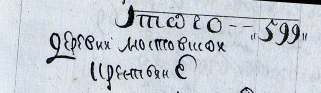 Итого -- "599"
деревни мостовскои
крестьян